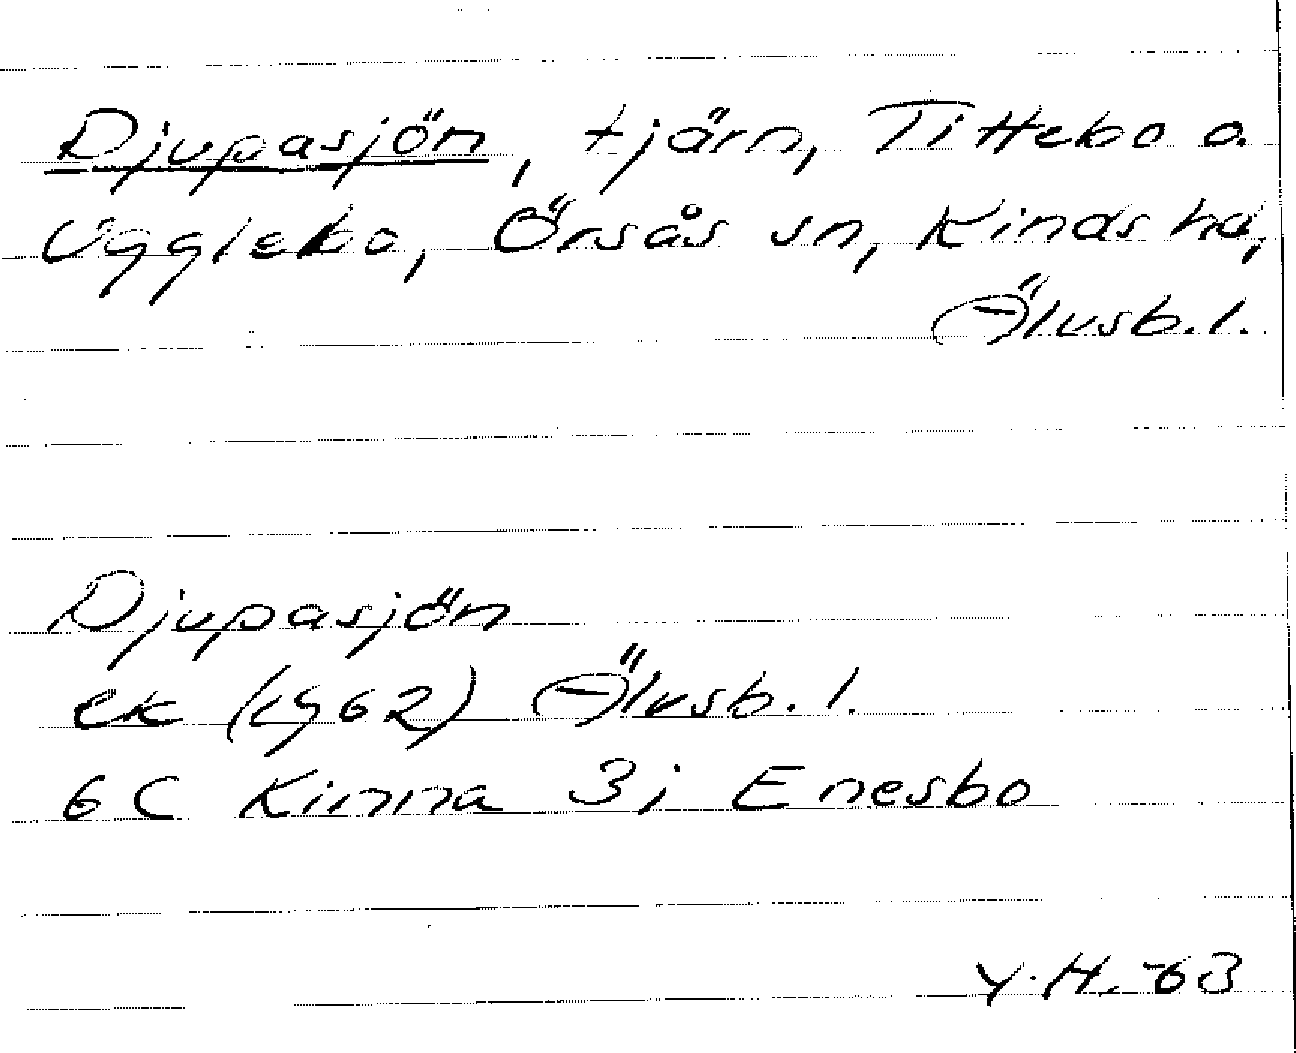 Djupasjön, tjärn, Tittebo o.
Ugglebo, Örsås sn, Kinds hd,
Älvsb. l.
Djupasjön
ek (1962) Älvsb. l.
6 C Kinna 3j Enesbo
Y.H. -63